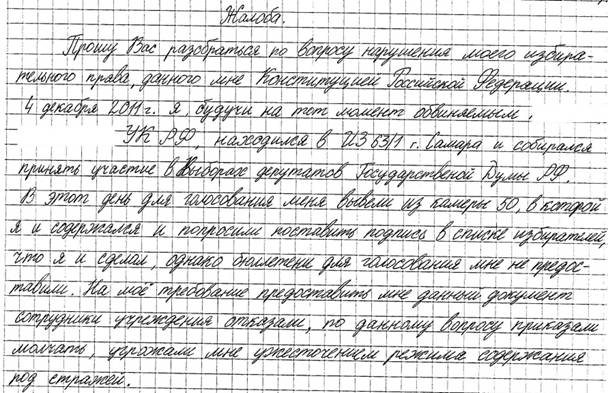 Жалоба.
Прошу Вас разобраться по вопросу нарушения моего избира-
тельного права, данного мне Конституцией Российской Федерации.
4 декабря 2011 г. я, будучи на тот момент обвиняемым,
УК РФ, находился в ИЗ 63/1 г. Самара и собирался
принять участие в Выборах депутатов Государственой Думы РФ.
В этот день для голосования меня вывели из камеры 50, в которой
я и содержался и попросили поставить подпись в списке избирателей,
что я и сделал, однако бюллетени для голосования мне не предос-
тавили. На моё требование предоставить мне данный документ
сотрудники учреждения отказали, по данному вопросу приказали
молчать, угрожали мне ужесточением режима содержания
под стражей.